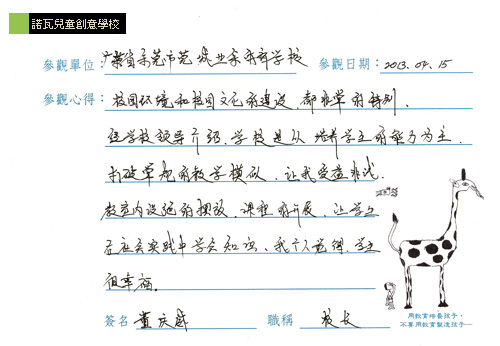 諾瓦兒童創意學校
參觀單位: 广东省东莞市莞城业余体育学校 參觀日期: 2013.04.15
參觀心得: 校园环境和校园文化的建设,都非常的特别.
经学校领导介绍,学校是以培养学生的能力为主,
打破常规的教学模式,让我受益非浅.
教室内设施的摆放,课程的开展,让学生
在社会实践中学会知识,我个人觉得,学生
很幸福。
簽名 董庆盛 職稱 校长
用教育培養孩子,
不要用教育製造孩子